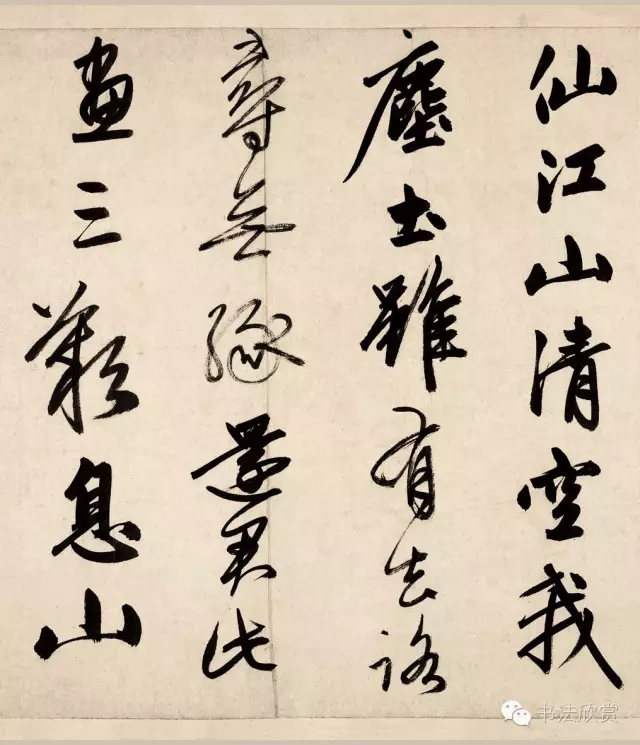 仙江山清空我
塵土雖有去路
尋無緣還君此
畫三歎息山
书法欣赏